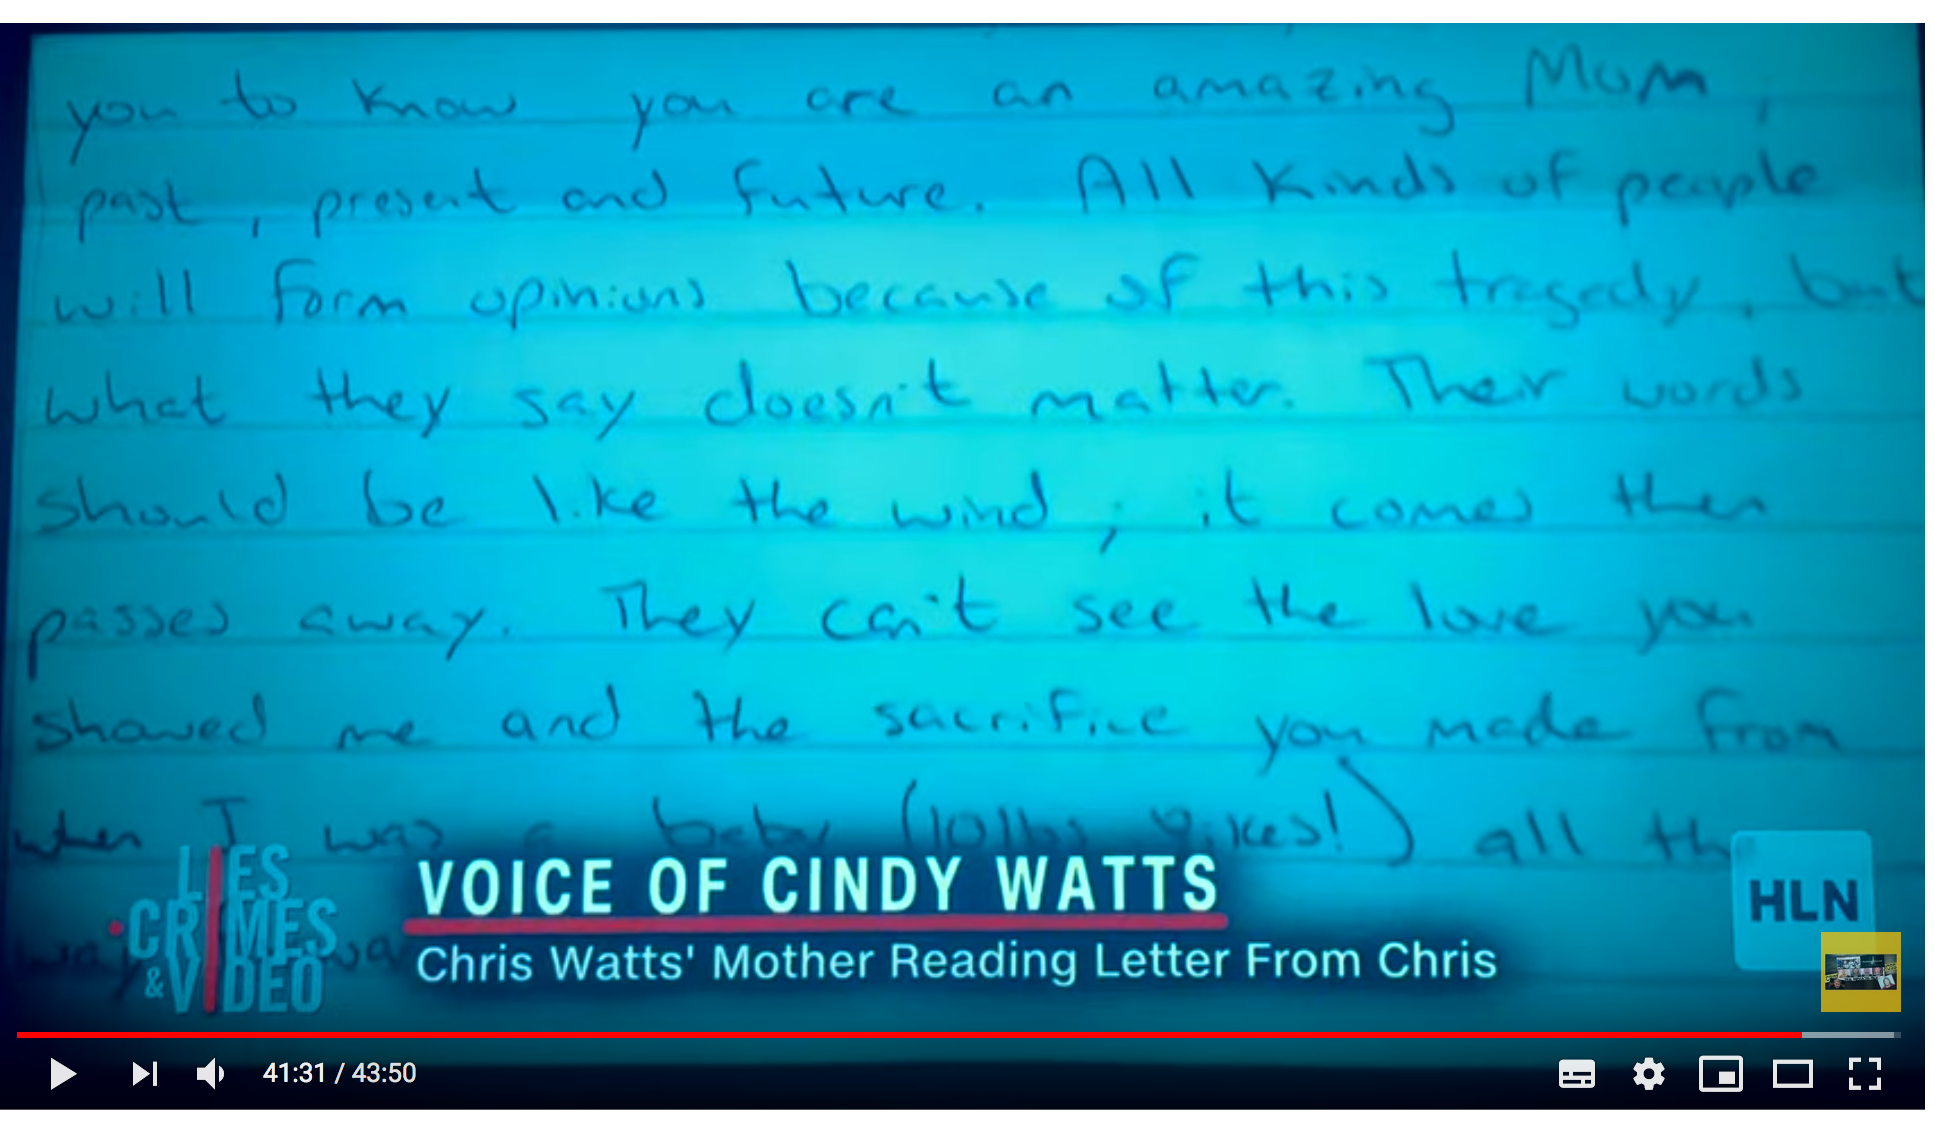 you to know you are an amazing Mom,
past, present and future. All kinds of people
will form opinions because of this tragedy, but
what they say doesn't matter. Their words
should be like the wind; it comes then
passes away. They can't see the love you
showed me and the sacrifice you made from
when I was a baby (10lbs Yikes!) all th
way
LIES
CRIMES
& VIDEO
VOICE OF CINDY WATTS
Chris Watts' Mother Reading Letter From Chris
HLN
41:31 / 43:50